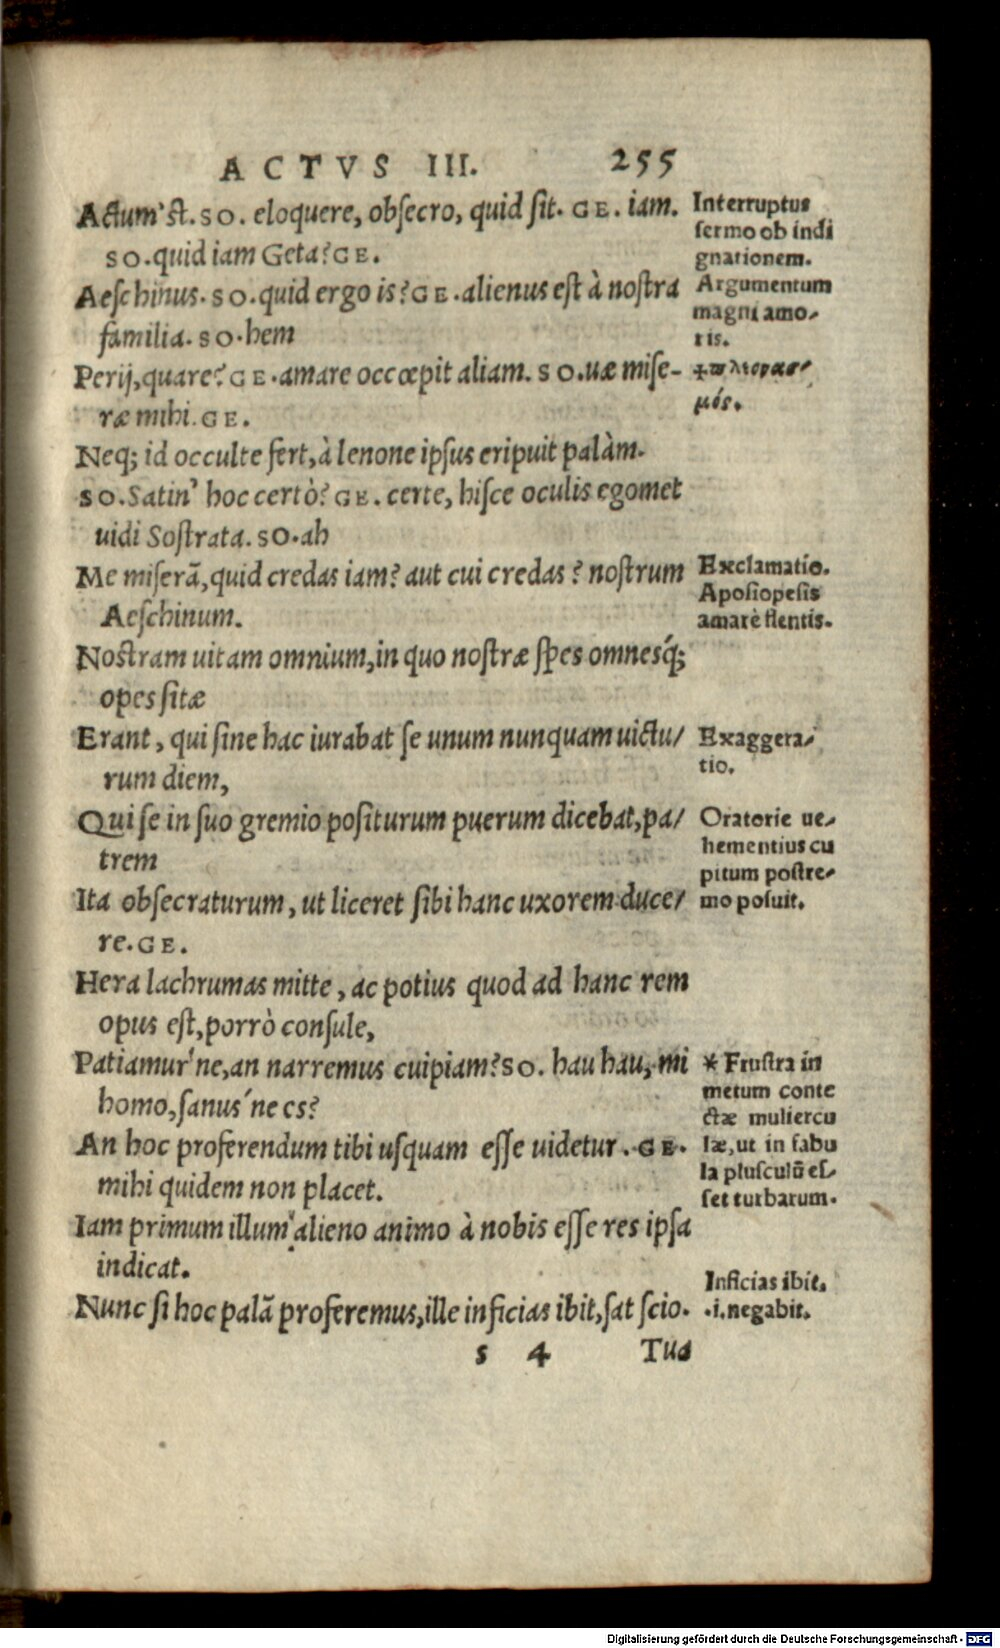 ACTVS III. 255
Actum'st. SO. eloquere, obsecro, quid sit. GE. iam.
SO. quid iam Geta? GE.
Aeschinus. SO. quid ergo is? GE. alienus est à nostra
familia. SO. hem
Perij, quare? GE. amare occœpit aliam. SO. uæ mise-
ræ mihi. GE.
Neq; id occulte fert, à lenone ipsus eripuit palàm.
SO. Satin' hoc certò? GE. certe, hisce oculis egomet
uidi Sostrata. SO. ah
Me miserã, quid credas iam? aut cui credas? nostrum
Aeschinum.
Nostram uitam omnium, in quo nostræ spes omnesq́;
opes sitæ
Erant, qui sine hac iurabat se unum nunquam uictu/
rum diem,
Qui se in suo gremio positurum puerum dicebat, pa/
trem
Ita obsecraturum, ut liceret sibi hanc uxorem duce/
re. GE.
Hera lachrumas mitte, ac potius quod ad hanc rem
opus est, porrò consule,
Patiamur'ne, an narremus cuipiam? SO. hau hau, mi
homo, sanus'ne es?
An hoc proferendum tibi usquam esse uidetur. GE.
mihi quidem non placet.
Iam primum illum alieno animo à nobis esse res ipsa
indicat.
Nunc si hoc palã proferemus, ille inficias ibit, sat scio.
s 4 Tua
Interruptus
sermo ob indi
gnationem.
Argumentum
magni amo-
ris.
μός.
Exclamatio.
Aposiopesis
amarè flentis.
Exaggera-
tio.
Oratorie ue-
hementius cu
pitum postre-
mo posuit.
* Frustra in
metum conie
ctæ muliercu
læ, ut in fabu
la plusculũ es-
set turbarum.
Inficias ibit,
.i. negabit.
Digitalisierung gefördert durch die Deutsche Forschungsgemeinschaft - DFG